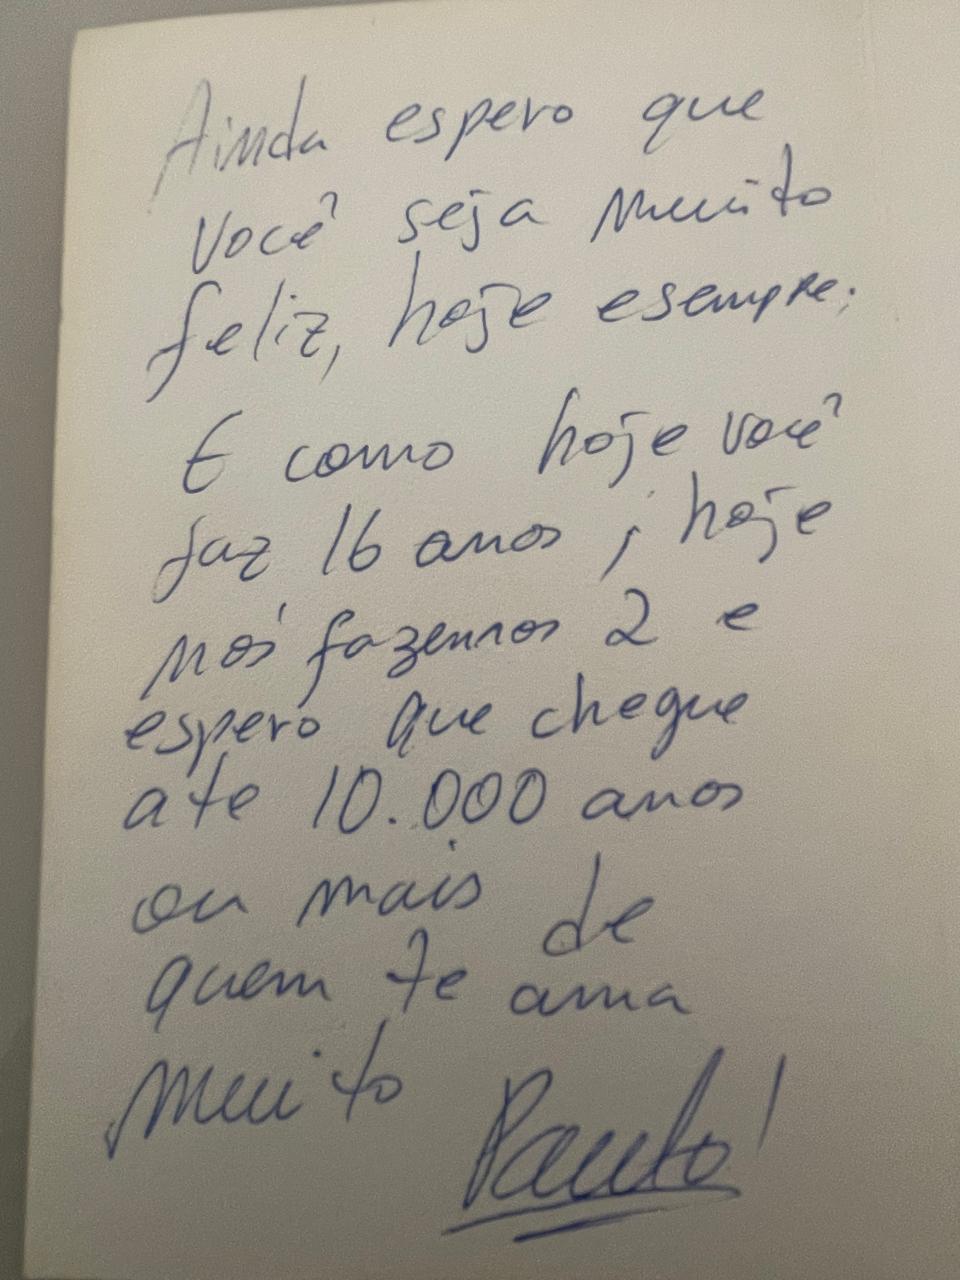 Ainda espero que
você seja muito
feliz, hoje e sempre.
E como hoje você
faz 16 anos, hoje
nós fazemos 2 e
espero que chegue
até 10.000 anos
ou mais de
quem te ama
muito Paulo!